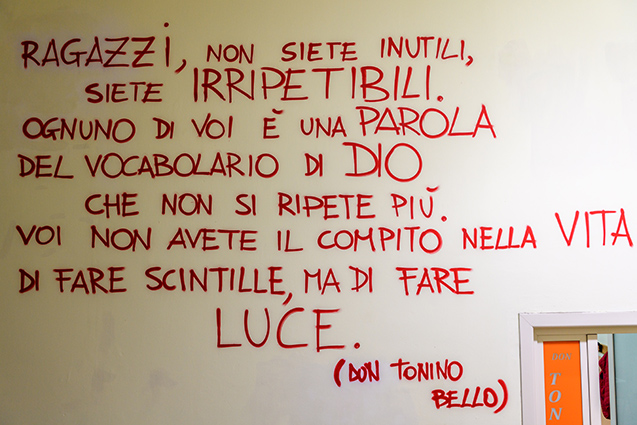 RAGAZZi, NON SIETE INUTILI,
SIETE IRRIPETIBILI.
OGNUNO DI VOI È UNA PAROLA
DEL VOCABOLARIO DI DIO
CHE NON SI RIPETE PIÙ.
VOI NON AVETE IL COMPITO NELLA VITA
DI FARE SCINTILLE, MA DI FARE
LUCE.
(DON TONINO
BELLO)
DON
TON